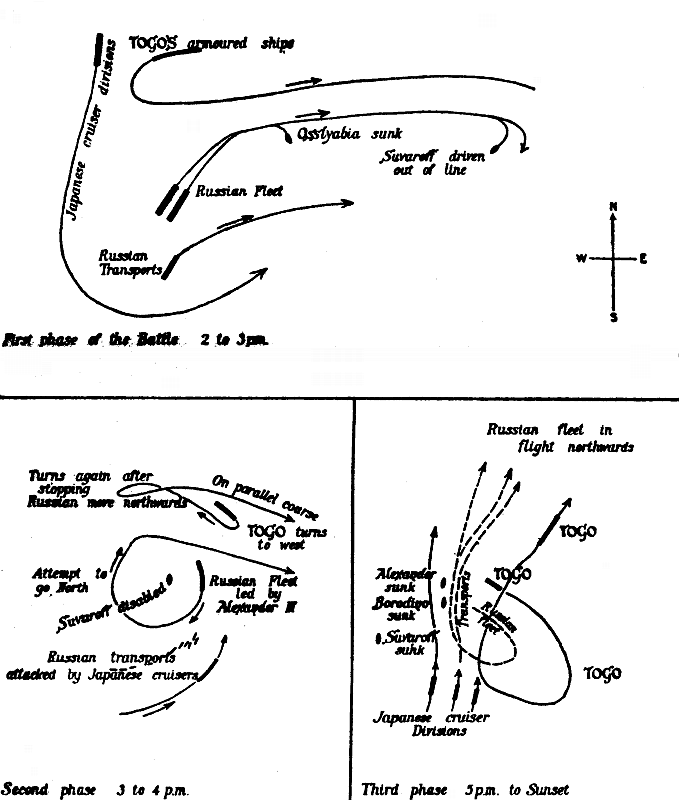 TOGO'S armoured ships
Japanese cruiser divisions
Osslyabia sunk
Suvaroff driven
out of line
Russian Fleet
Russian
Transports
N
W E
S
First phase of the Battle 2 to 3 p.m.
Turns again after
stopping
Russian move northwards
On parallel course
TOGO turns
to west
Attempt to
go North
Suvaroff disabled
Russian Fleet
led by
Alexander III
Russian transports
attacked by Japanese cruisers
Second phase 3 to 4 p.m.
Russian fleet in
flight northwards
TOGO
TOGO
Alexander
sunk
Borodino
sunk
Suvaroff
sunk
Transports
Russian
Fleet
TOGO
Japanese cruiser
Divisions
Third phase 5 p.m. to Sunset